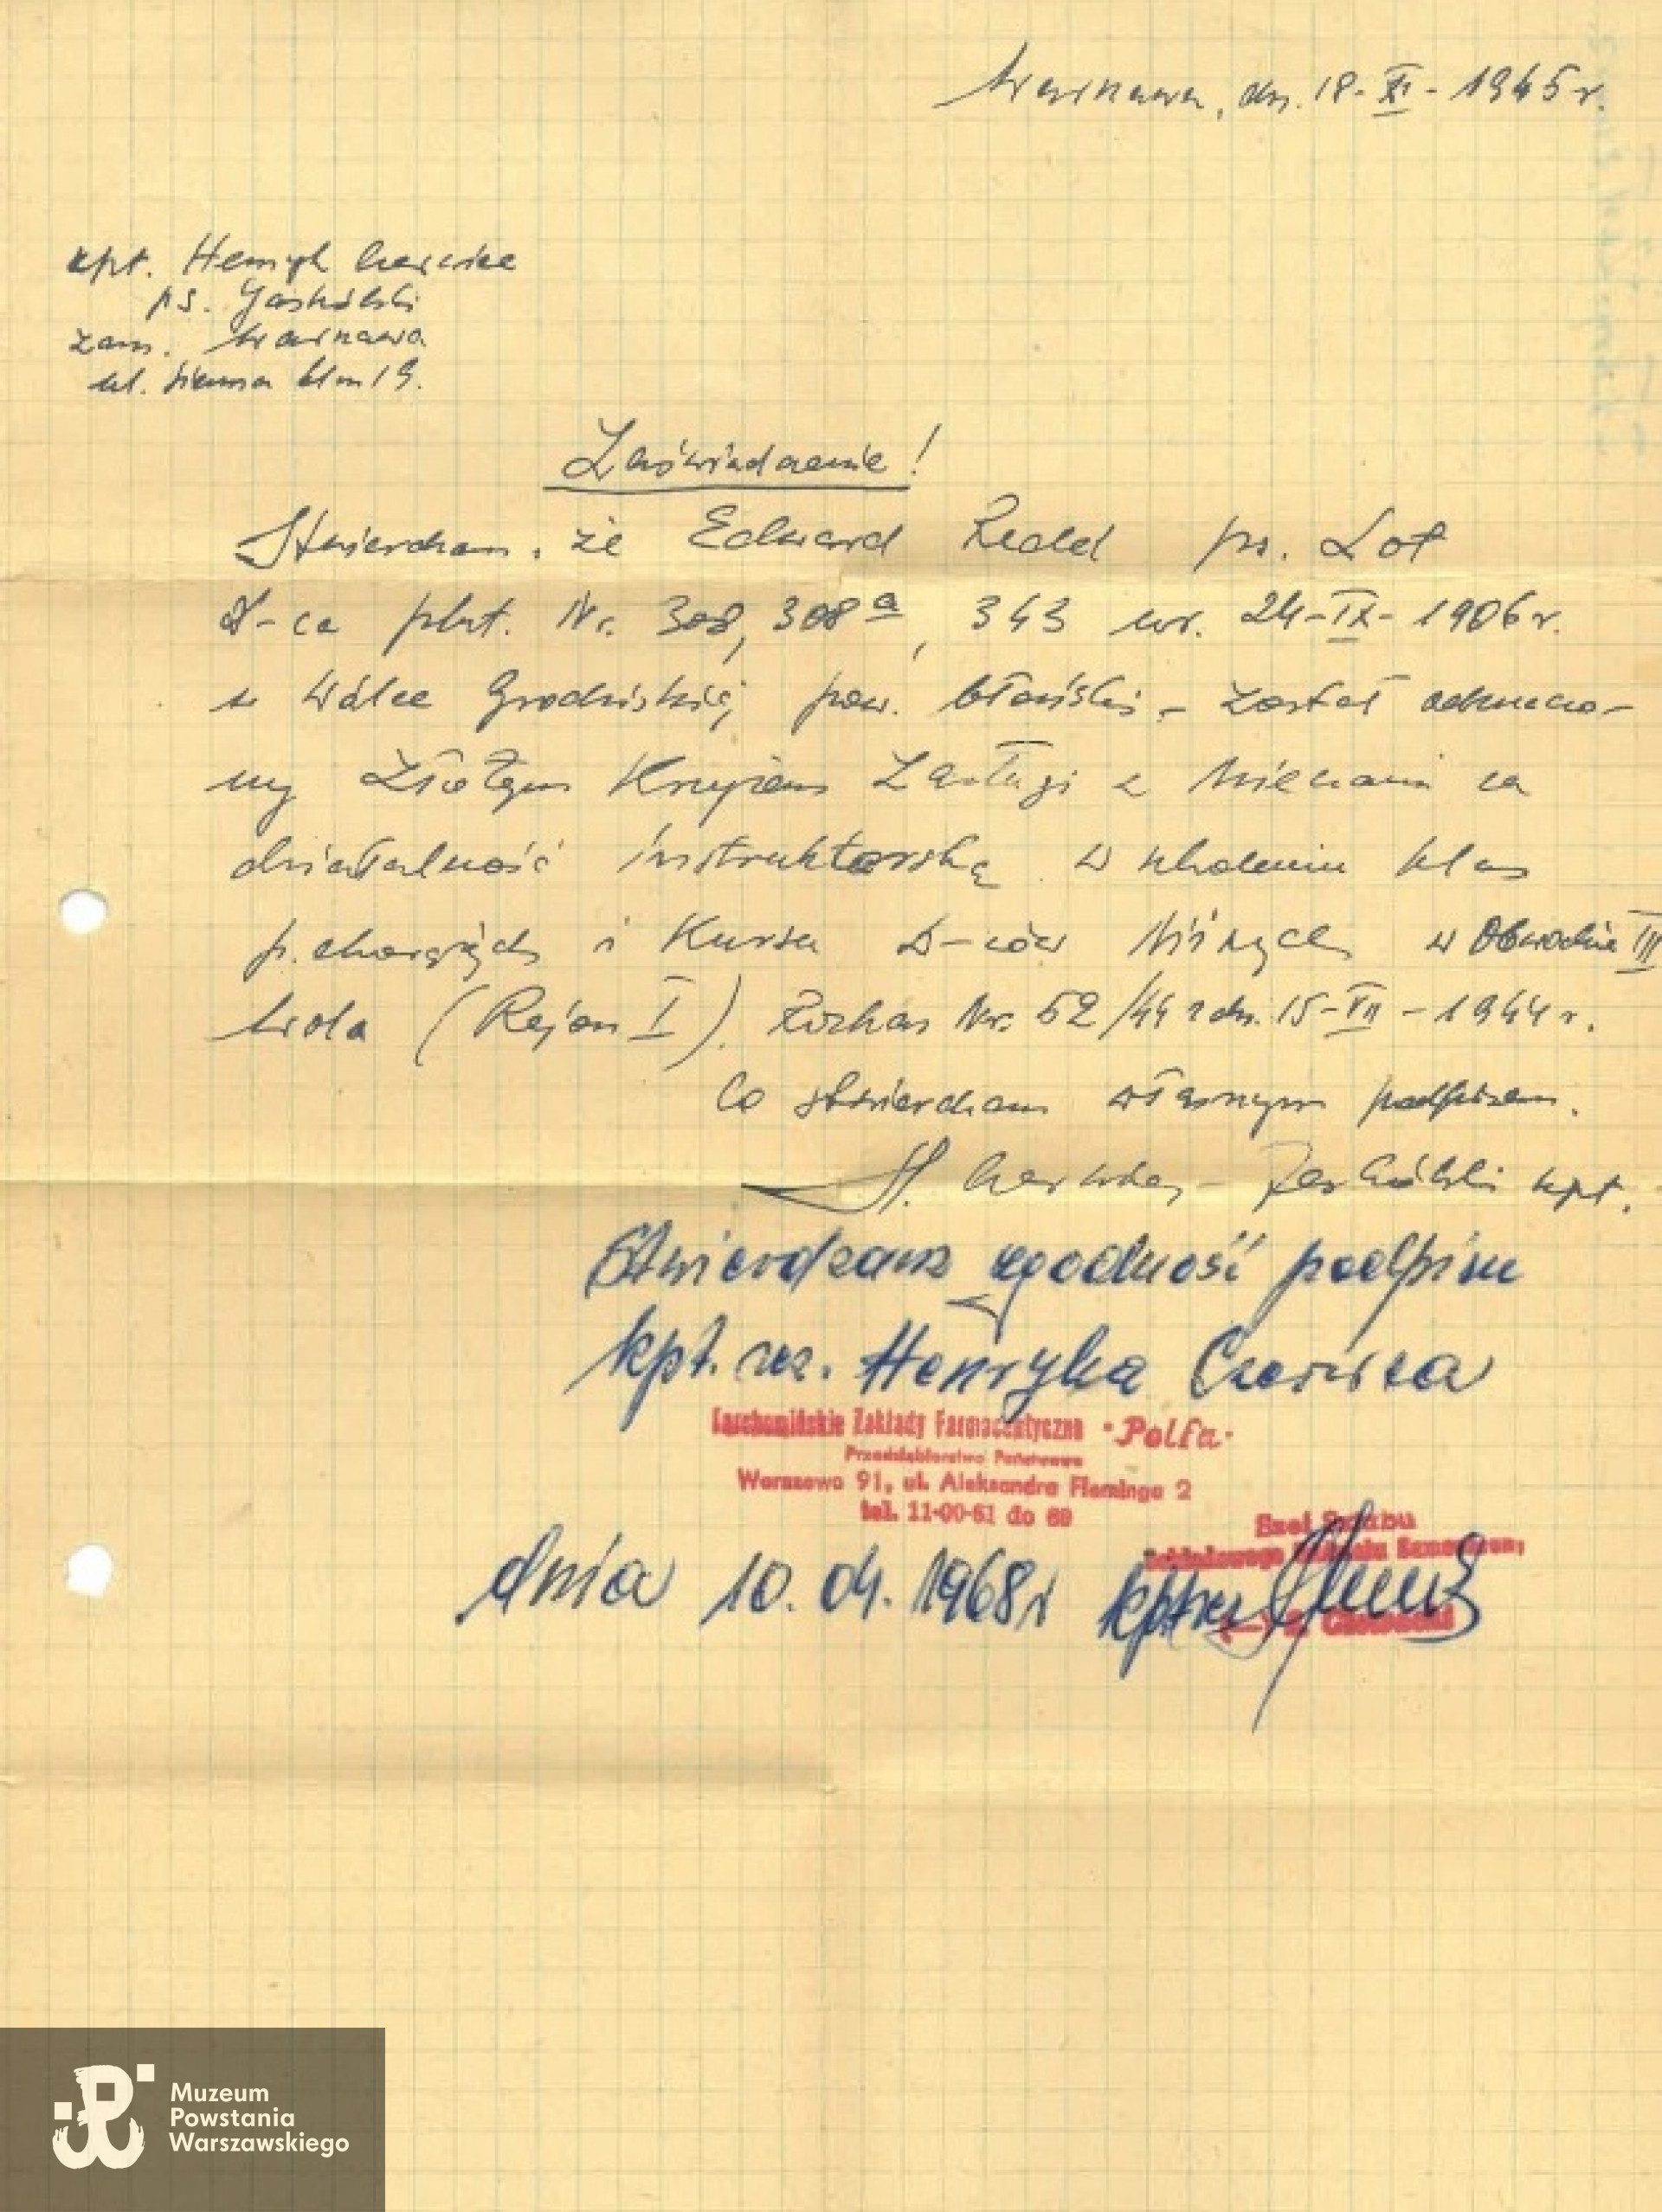 Warszawa, dn. 18-XI-1945 r.
kpt. Henryk Czerwiec
ps. Jaskólski
zam. Warszawa
ul. Sienna 61 m 19.
Zaświadczenie!
Stwierdzam, że Edward Redel ps. Lot
D-ca plut. Nr. 308, 308a, 343 ur. 24-IX-1906 r.
w Wólce Grodziskiej pow. błoński - został odznaczo-
ny Złotym Krzyżem Zasługi z Mieczami za
działalność instruktorską w szkoleniu klas
p. chorążych i Kursu D-ców Niższych w Obwodzie III
Wola (Rejon I). Rozkaz Nr. 52/44 z dn. 15-VII-1944 r.
Co stwierdzam własnym podpisem.
H. Czerwiec - Jaskólski kpt.
Stwierdzam zgodność podpisu
kpt. rez. Henryka Czerwca
Tarchomińskie Zakłady Farmaceutyczne "Polfa"
Przedsiębiorstwo Państwowe
Warszawa 91, ul. Aleksandra Fleminga 2
tel. 11-00-61 do 69
Szef Sztabu
Zakładowego Oddziału
dnia 10.04.1968 r kpt rez
Muzeum
Powstania
Warszawskiego